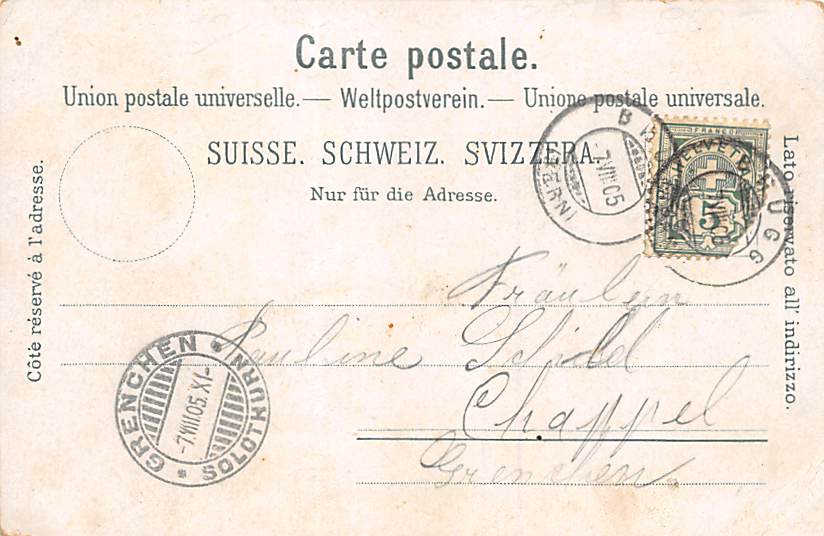 Carte postale.
Union postale universelle. — Weltpostverein. — Unione postale universale.
SUISSE. SCHWEIZ. SVIZZERA.
Nur für die Adresse.
Côté réservé à l'adresse.
Lato riservato all' indirizzo.
BRÜGG
(BERN)
-7.VIII.05
FRANCO
HELVETIA
5
Fräulein
Pauline Schild
Chappel
Grenchen.
GRENCHEN
-7.VIII.05.XI-
SOLOTHURN